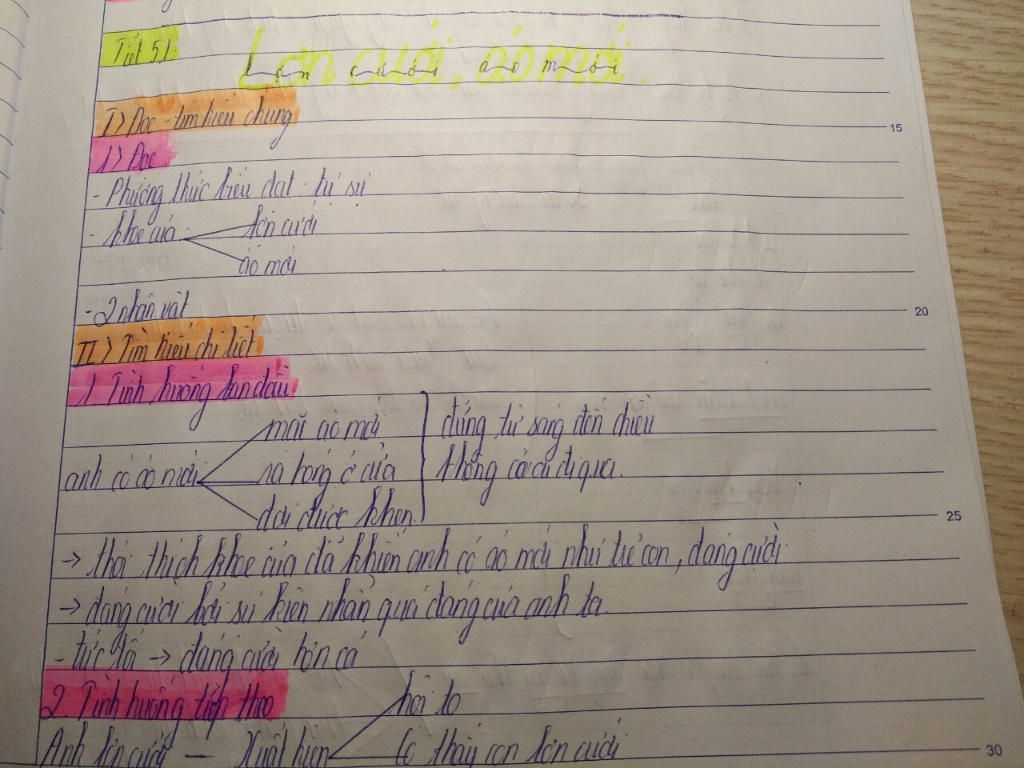 Tiết 51
Lợn cưới, áo mới.
I > Đọc - tìm hiểu chung
15
1 > Đọc
- Phương thức biểu đạt: tự sự
- khoe của
lợn cưới
áo mới
- 2 nhân vật
20
II > Tìm hiểu chi tiết
1. Tình huống ban đầu
mặc áo mới
đứng từ sáng đến chiều
anh có áo mới
ra hóng ở cửa
không có ai đi qua.
đợi được khen
25
→ thói thích khoe của đã khiến anh có áo mới như trẻ con, đáng cười
→ đáng cười bởi sự kiên nhẫn quá đáng của anh ta.
- tức tối → đáng cười hơn cả
2. Tình huống tiếp theo
hỏi to
Anh lợn cưới — Xuất hiện
Có thấy con lợn cưới
30